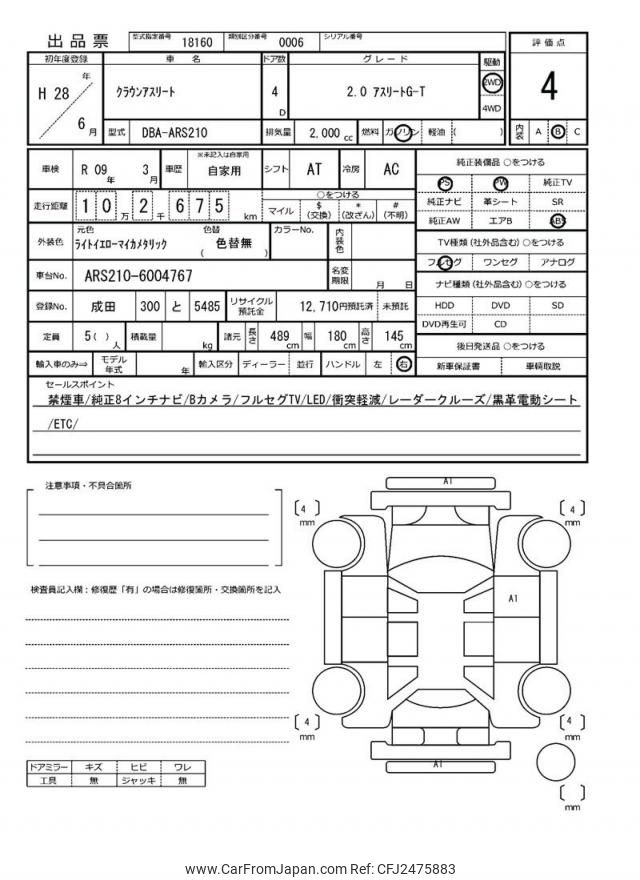 出品票 型式指定番号 18160 類別区分番号 0006 シリアル番号
初年度登録 車 名 ドア数 グレード 駆動 評価点
H 28 年 6 月 クラウンアスリート 4 D 2.0 アスリートG-T 2WD 4WD 4
型式 DBA-ARS210 排気量 2,000 cc 燃料 ガソリン 軽油 ( ) 内装 A B C
車検 R 09 年 3 月 車歴 ※未記入は自家用 自家用 シフト AT 冷房 AC 純正装備品 ○をつける
PS PW 純正TV
走行距離 1 0 万 2 千 6 7 5 km ○をつける マイル $ (交換) * (改ざん) # (不明) 純正ナビ 革シート SR
純正AW エアB ABS
外装色 元色 ライトイエローマイカメタリック 色替 ( 色替無 ) カラーNo. 内装色 TV種類 (社外品含む) ○をつける
フルセグ ワンセグ アナログ
車台No. ARS210-6004767 名変期限 月 日 ナビ種類 (社外品含む) ○をつける
登録No. 成田 300 と 5485 リサイクル預託金 12,710円預託済 未預託 HDD DVD SD
DVD再生可 CD
定員 5 ( ) 人 積載量 kg 諸元 長さ 489 cm 幅 180 cm 高さ 145 cm 後日発送品 ○をつける
輸入車のみ⇒ モデル年式 年 輸入区分 ディーラー 並行 ハンドル 左 右 新車保証書 車輌取説
セールスポイント
禁煙車/純正8インチナビ/Bカメラ/フルセグTV/LED/衝突軽減/レーダークルーズ/黒革電動シート
/ETC/
注意事項・不具合箇所
A1
4 mm 4 mm
検査員記入欄：修復歴「有」の場合は修復箇所・交換箇所を記入
A1
4 mm 4 mm
ドアミラー キズ ヒビ ワレ
工具 無 ジャッキ 無
A1
mm
www.CarFromJapan.com Ref: CFJ2475883